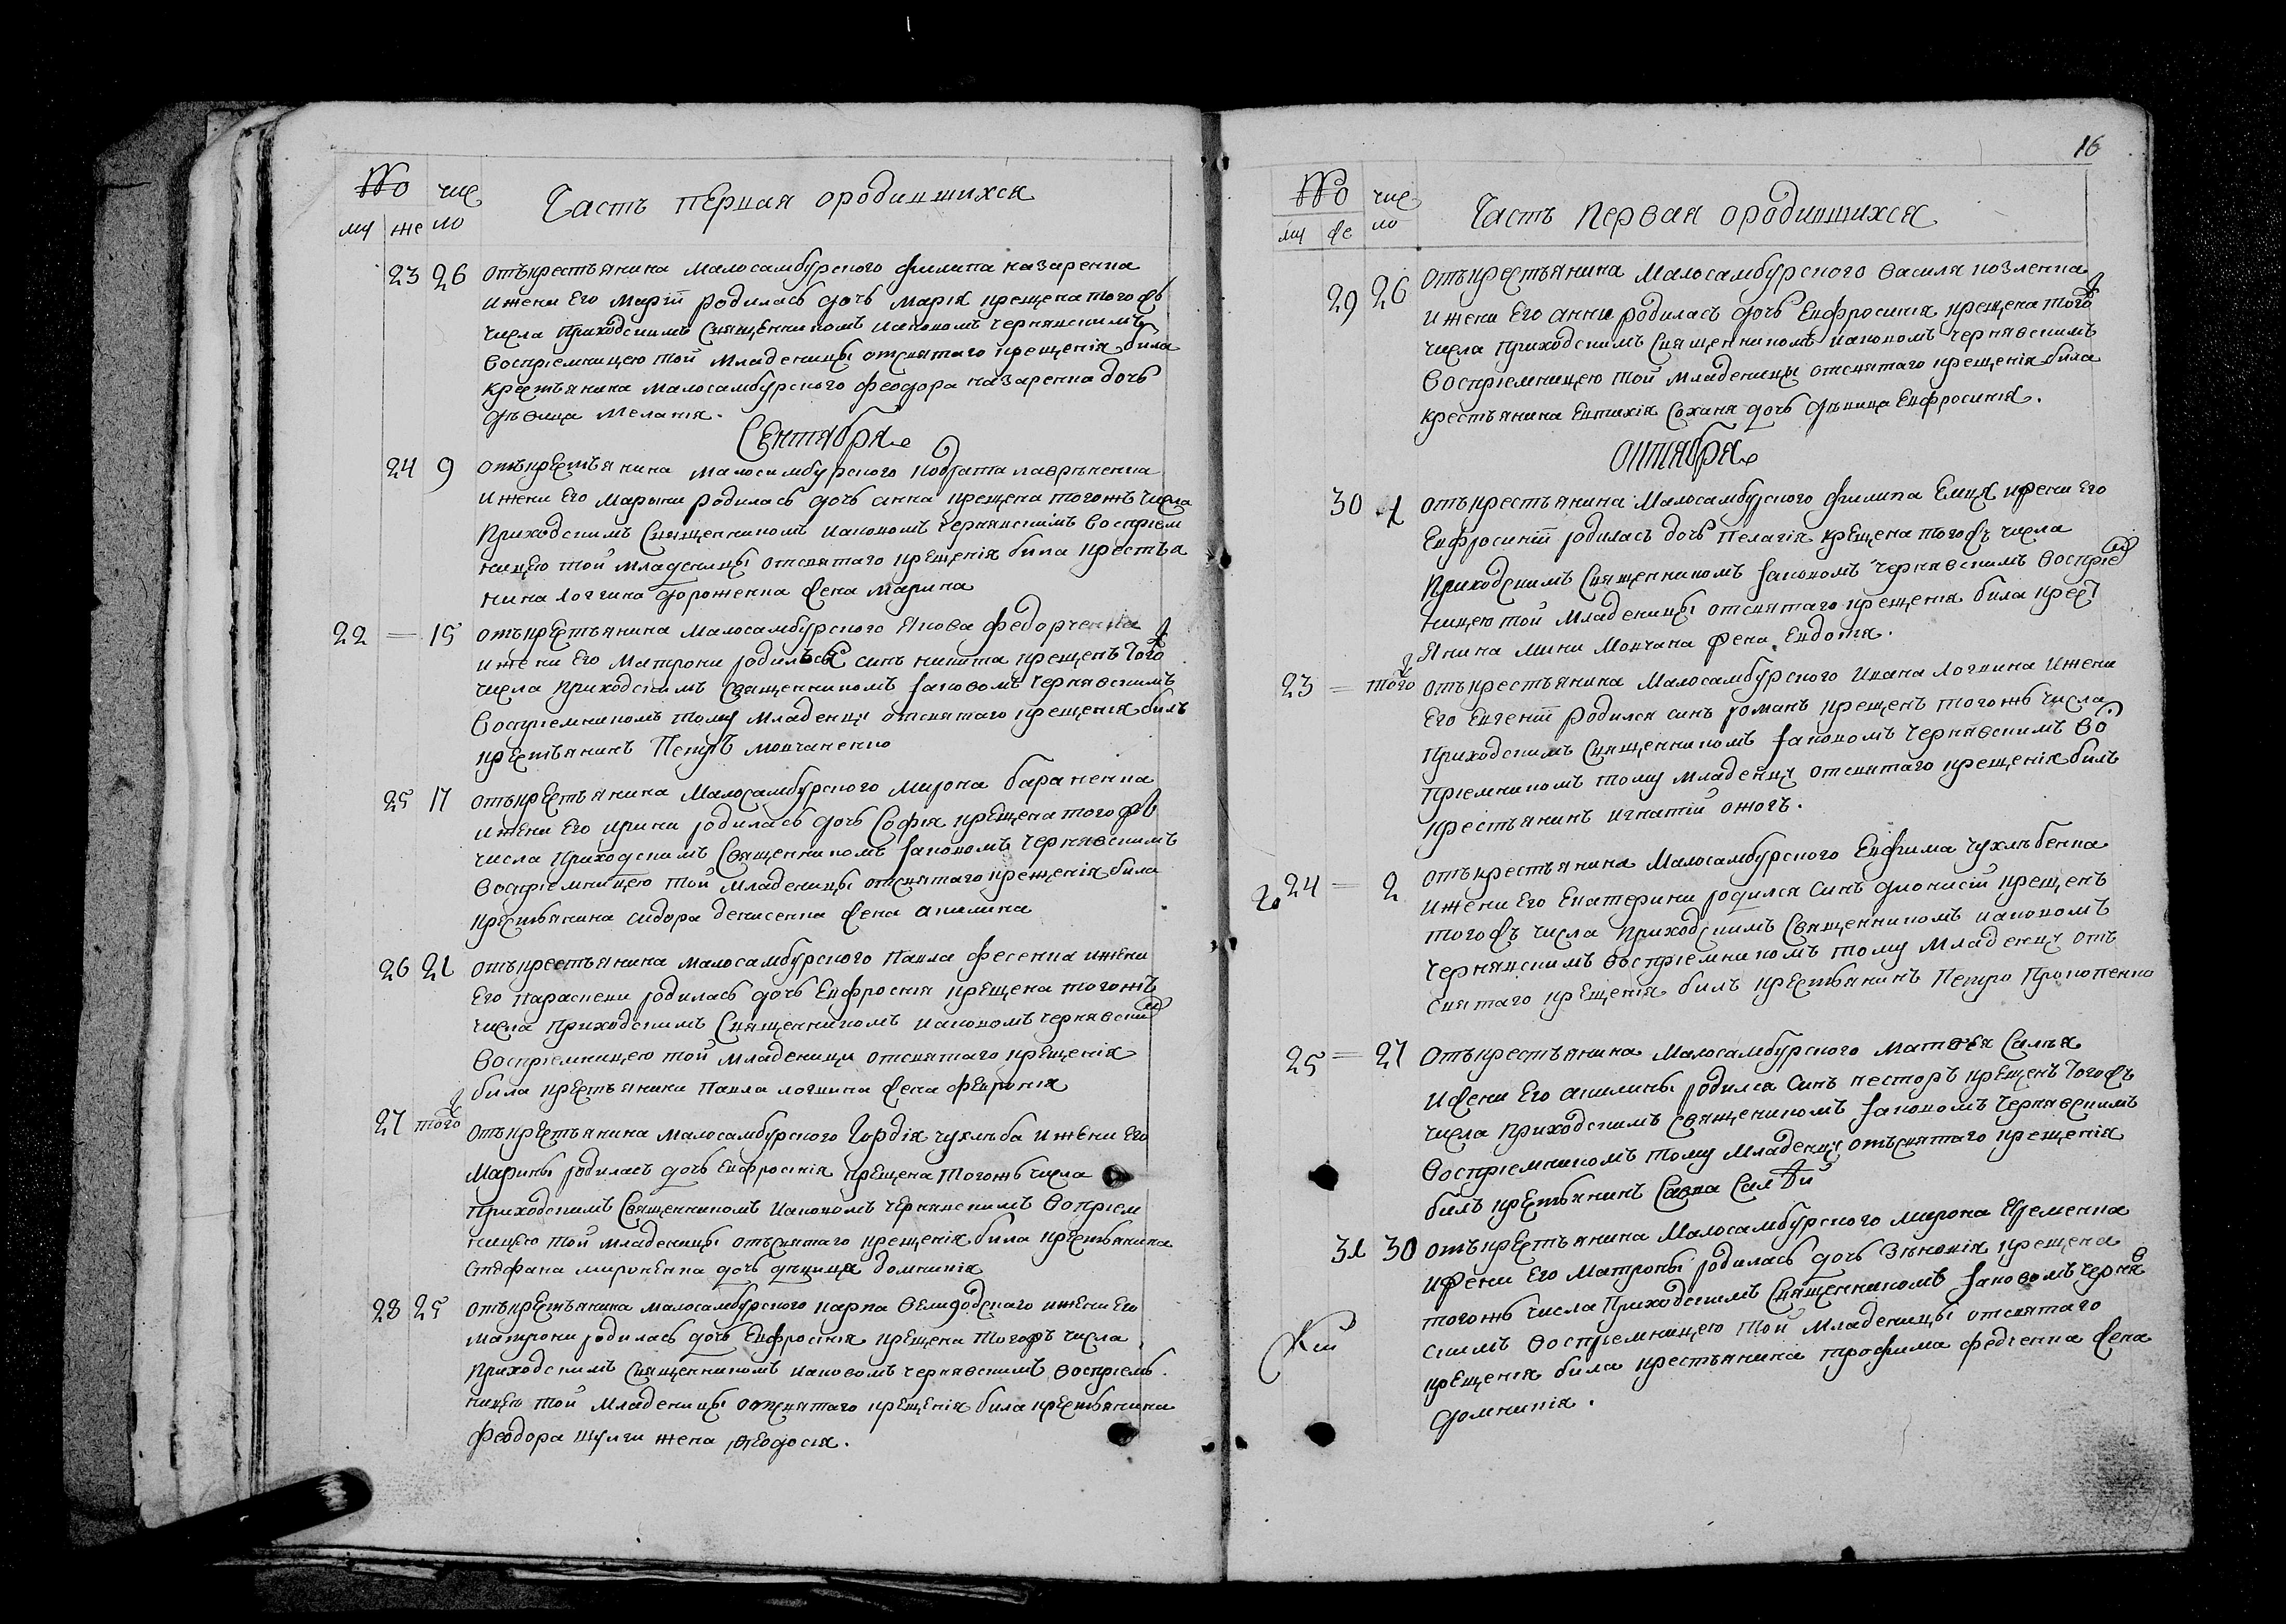 № чис Часть первая ородившихся
му же ло
23 26 отъкрестьянина малосамбурского филипа назаренка
ижени Его Маріи родилась дочь Марія крещена тогожъ
числа приходскимъ священникомъ иаковомъ чернявскимъ
воспріемницею той младеницы отсвятаго крещенія била
крестьянина малосамбурского феодора назаренка дочь
дѣвица Меланія.
Сентября
24 9 отъкрестьянина малосамбурского кодрата лавриненка
ижени Его Марыни родилась дочь анна крещена тогожъ числа
приходскимъ священникомъ иаковомъ чернявскимъ воспріем
ницею той младеницы отсвятаго крещенія била крестья
нина логгина дороженка жена марина
22 = 15 отъкрестьянина малосамбурского Якова федорченка
ижени Его матрони родилься синъ никита крещенъ того ж
числа приходскимъ священникомъ Iаковомъ чернявскимъ
воспріемникомъ тому младенцу отсвятаго крещенія билъ
крестьянинъ Петръ мовчаненко
25 17 отъкрестьянина малосамбурского мирона бараненка
ижени Его ирини родилась дочь Софія крещена тогожъ
числа приходскимъ священникомъ Iаковомъ чернявскимъ
воспріемницею той младеницы отсвятаго крещенія била
крестьянина сидора денисенка жена акилина
26 21 отъкрестьянина малосамбурского Павла фесенка ижени
Его параскеви родилась дочь Евфроснія крещена тогожъ
числа приходскимъ священникомъ иаковомъ чернявским
воспріемницею той младеници отсвятаго крещенія
била крестьянини Павла логвина жена февронія
27 того ж отъкрестьянина малосамбурского Гордія чухлѣба ижени Его
Марины родилась дочь Евфросинія крещена тогожъ числа
приходскимъ священникомъ иаковомъ чернявскимъ вопріем
ницею той младеницы отъсвятаго крещенія била крестьянина
стефана мироненка дочь дѣвица домникія
28 25 отъкрестьянина малосамбурского карпа ижени Его
матрони родилась дочь Евфросинія крещена тогожъ числа
приходскимъ священникомъ иаковомъ чернявскимъ воспріемъ
ницею той младеницы отсвятаго крещенія била крестьянина
феодора шулги жена феодосія.
16
№ чис Часть Первая ородившихся
му же ло
29 26 отъкрестьянина малосамбурского василя козленка
ижени Его анни родилась дочь Евфросинія крещена того ж
числа приходскимъ священникомъ иаковомъ чернявскимъ
воспріемницею той младеницы отсвятаго крещенія била
крестьянина Евтихія Сохана дочь дѣвица Евфросинія.
октября
30 1 отъкрестьянина малосамбурского филипа Емця ижени Его
Евфросиніи родилась дочь Пелагія крещена тогожъ числа
приходскимъ священникомъ Iаковомъ чернявскимъ воспріем
ницею той младеницы отсвятаго крещенія била крест
янина мини мовчана жена Евдокія.
23 = того ж отъкрестьянина малосамбурского Ивана логвина ижени
Его Евгеніи родился синъ романъ крещенъ тогожъ числа
приходскимъ священникомъ Iаковомъ чернявскимъ вос
пріемникомъ тому младенцу отсвятаго крещенія билъ
крестьянинъ игнатій ожогъ.
24 = 2 отъкрестьянина малосамбурского Евфима чухлѣбенка
ижени Его Екатерини родился синъ дионисій крещенъ
тогожъ числа приходскимъ священникомъ иаковомъ
чернявскимъ воспріемникомъ тому младенцу отъ
святаго крещенія билъ крестьянинъ Петро Прокопенко
25 = 27 отъкрестьянина малосамбурского матвея Салѣя
ижени Его акилины родился синъ несторъ крещенъ тогожъ
числа приходскимъ священикомъ Iаковомъ чернявскимъ
воспріемникомъ тому младенцу отъсвятаго крещенія
билъ крестьянинъ Савва Салѣй
31 30 отъкрестьянина малосамбурского мирона Яременка
ижени Его матроны родилась дочь Зѣновія крещена
тогожъ числа приходскимъ священникомъ Iаковомъ черняв
скимъ воспріемницею той младеницы отсвятаго
крещенія била крестьянина трофима федченка жена
домникія.